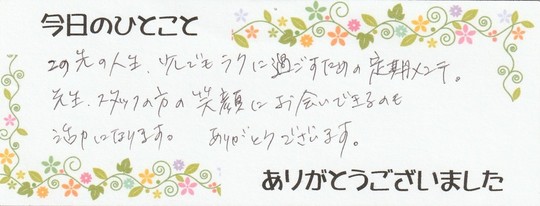 今日のひとこと
この先の人生、少しでもラクに過ごすための定期メンテ。
先生、スタッフの方の笑顔にお会いできるのも
活力になります。 ありがとうございます。
ありがとうございました